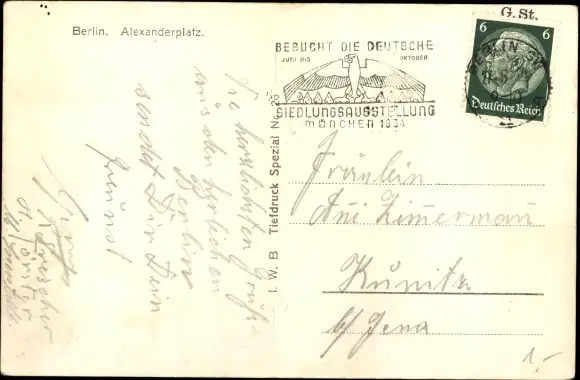 Berlin. Alexanderplatz.
BESUCHT DIE DEUTSCHE
JUNI BIS OKTOBER
SIEDLUNGSAUSSTELLUNG
MÜNCHEN 1934
G.St.
6 6
BERLIN SW
Deutsches Reich
I. W. B Tiefdruck Spezial Nr. 26
Die herzlichsten Grüße
aus dem herlichen
Berlin
sendet Dir Dein
Freund
Fräulein
Ani Zimerman
Kunitz
b/Jena
1.-